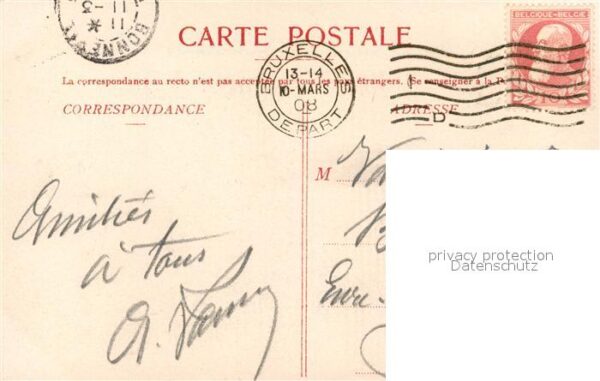 BONNEVAL
11
11-3
*
CARTE POSTALE
BELGIQUE-BELGIË
BRUXELLES
13-14
10-MARS
08
DEPART
D
La correspondance au recto n'est pas acceptée par tous les pays étrangers. (Se renseigner à la P
CORRESPONDANCE
ADRESSE
M
Amitiés
à tous
Eure-
privacy protection
Datenschutz